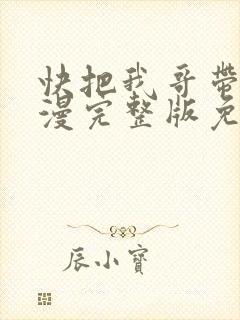 快把我哥帶
漫完整版免
辰小寶